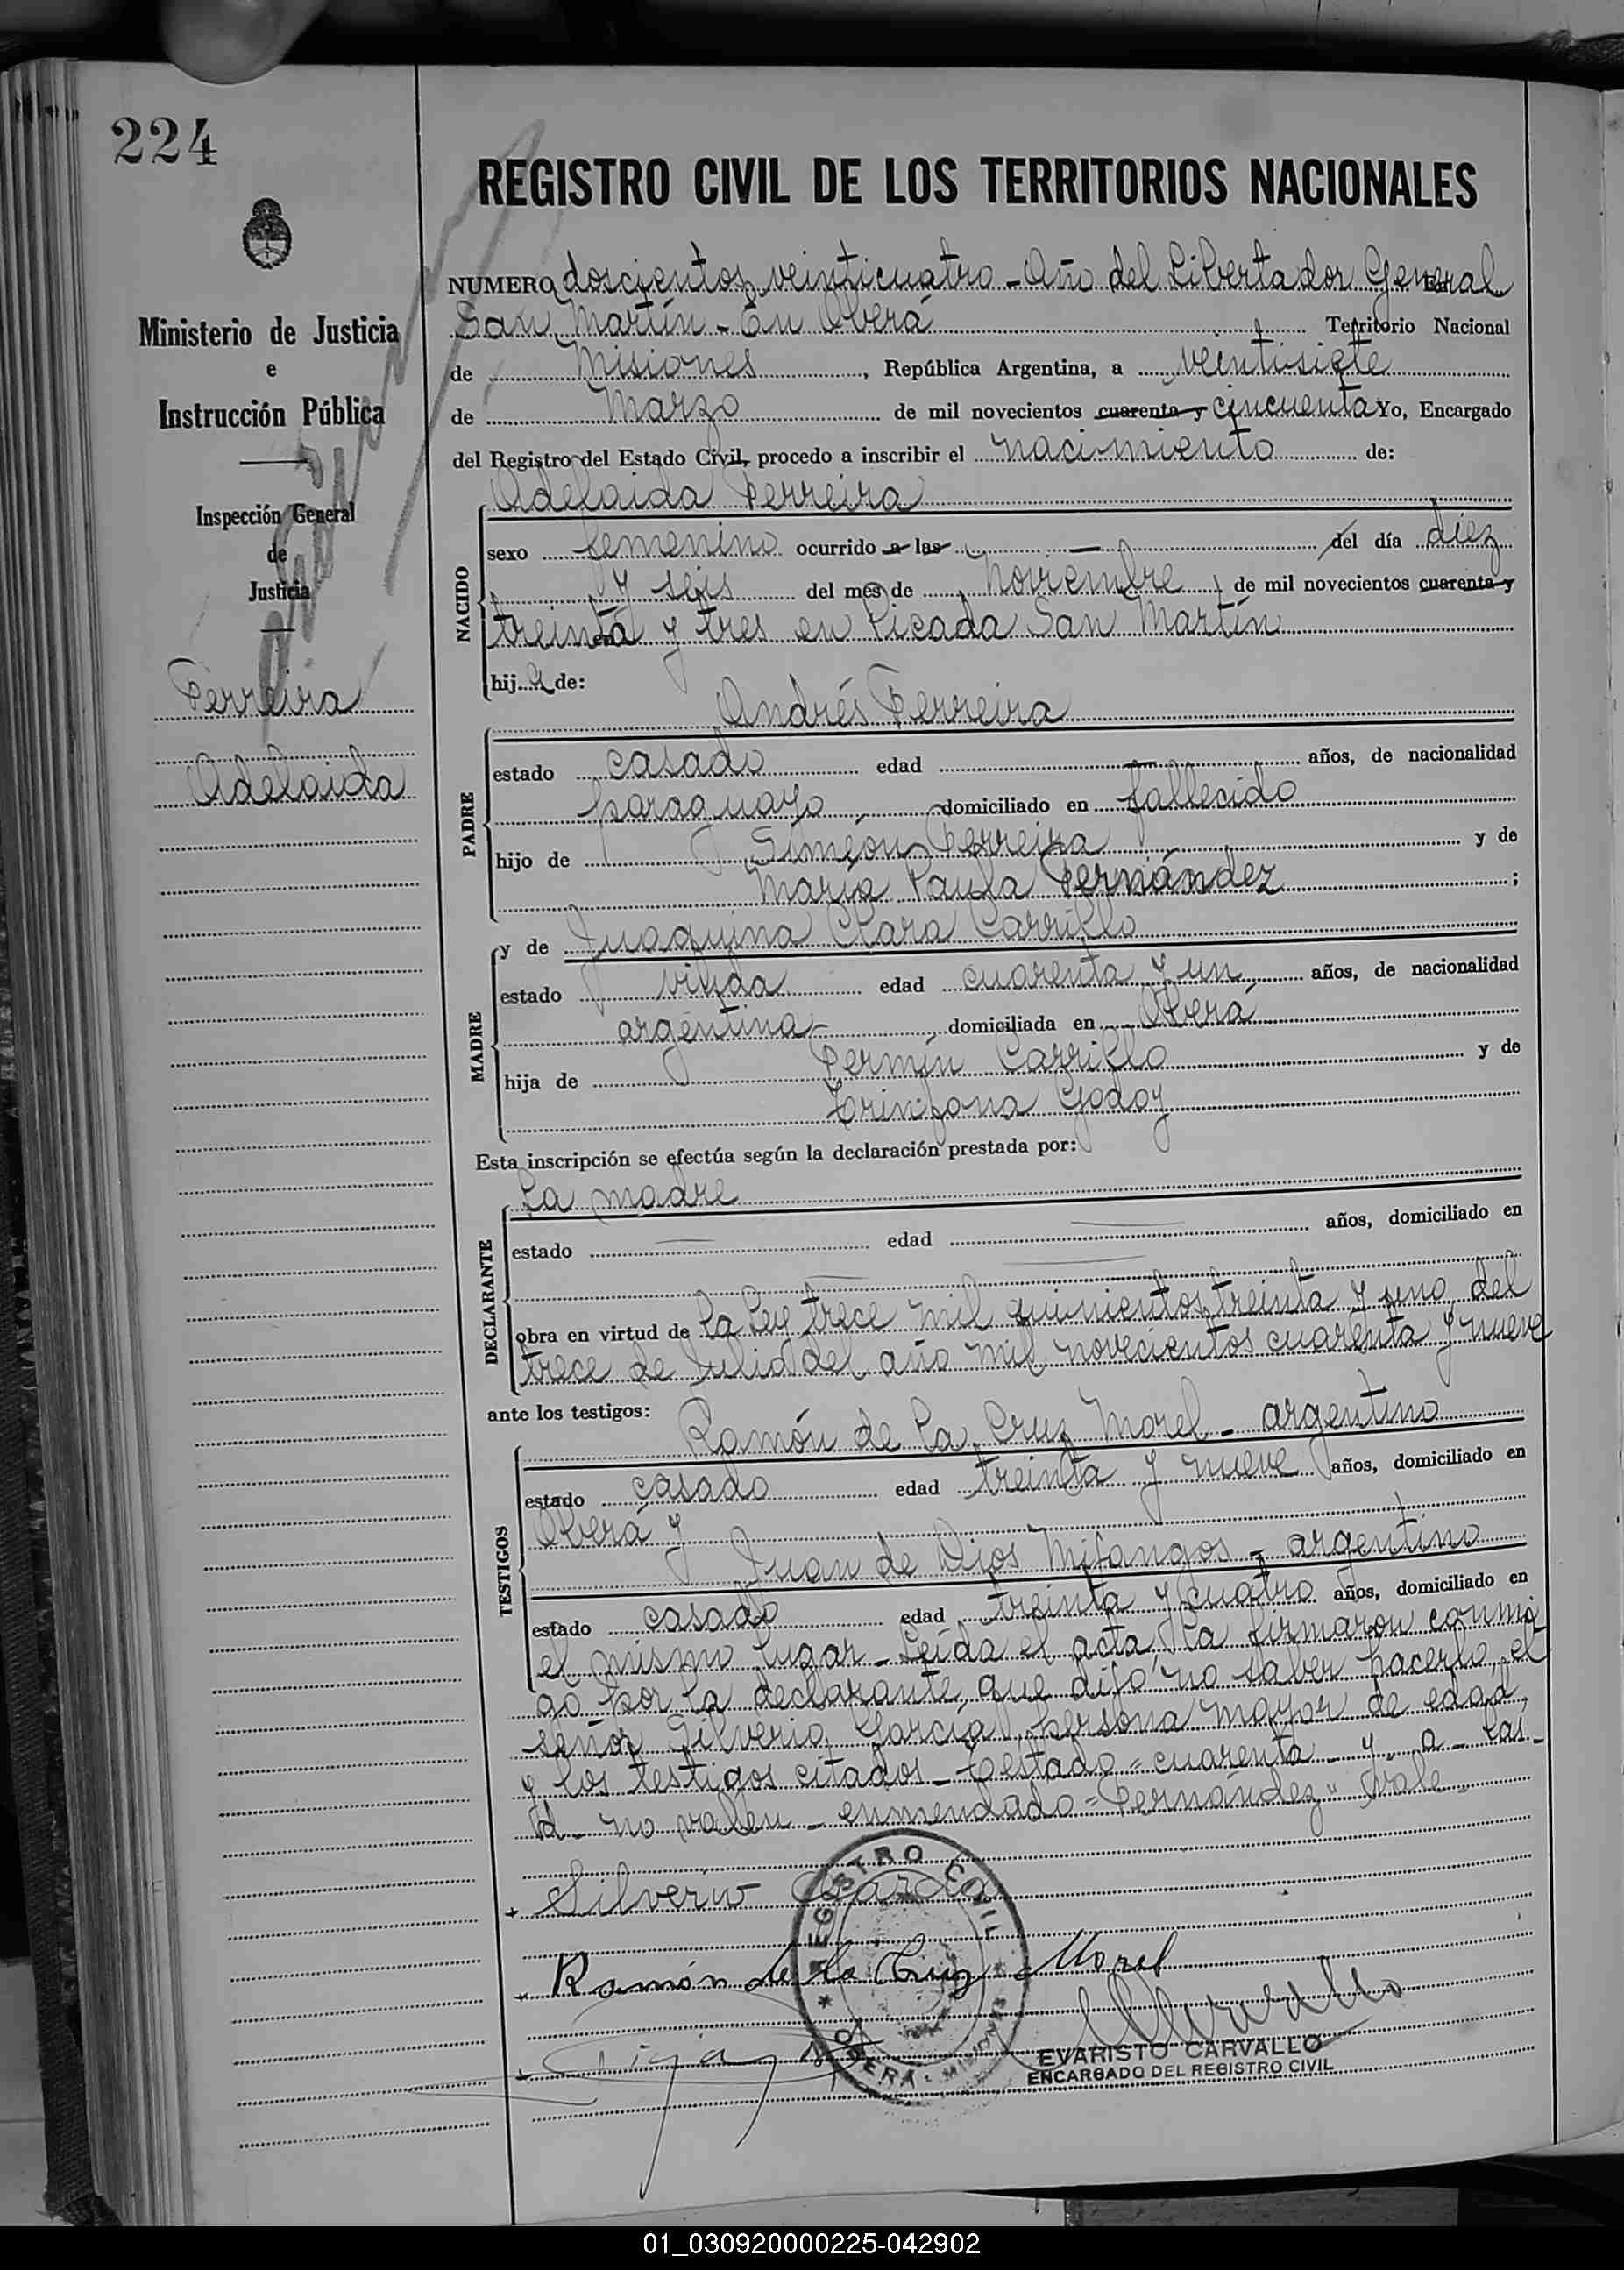 224
Ministerio de Justicia
e
Instrucción Pública
Inspección General
de
Justicia
Ferreira
Adelaida
REGISTRO CIVIL DE LOS TERRITORIOS NACIONALES
NUMERO doscientos veinticuatro - Año del Libertador General
San Martín - En Oberá Territorio Nacional
de Misiones, República Argentina, a veintisiete
de Marzo de mil novecientos cuarenta y cincuenta Yo, Encargado
del Registro del Estado Civil, procedo a inscribir el nacimiento de:
Adelaida Ferreira
NACIDO
sexo femenino ocurrido a las — del día diez
y seis del mes de noviembre de mil novecientos cuarenta y
treinta y tres en Picada San Martín
hija de:
Andrés Ferreira
PADRE
estado casado edad — años, de nacionalidad
paraguayo domiciliado en fallecido
hijo de Simeón Ferreira y de
María Paula Fernández;
MADRE
y de Juaquina Clara Carrillo
estado viuda edad cuarenta y un años, de nacionalidad
argentina - domiciliada en Oberá
hija de Fermín Carrillo y de
Godoy
Esta inscripción se efectúa según la declaración prestada por:
La madre
DECLARANTE
estado — edad — años, domiciliado en
obra en virtud de la Ley trece mil quinientos treinta y uno, del
trece de Julio del año mil novecientos cuarenta y nueve
ante los testigos:
Ramón de la Cruz Morel - argentino
TESTIGOS
estado casado edad treinta y nueve años, domiciliado en
Oberá y
Juan de Dios Mijangos - argentino
estado casado edad treinta y cuatro años, domiciliado en
el mismo lugar - Leída el acta, la firmaron conmi
go por la declarante, que dijo no saber hacerlo, el
señor Silverio García, persona mayor de edad,
y los testigos citados - Testado = cuarenta - y - a - las -
d - no valen - enmendado = "Fernández" vale -
Silverio García
Ramón de la Cruz Morel
REGISTRO CIVIL
OBERA - MISIONES
EVARISTO CARVALLO
ENCARGADO DEL REGISTRO CIVIL
01_030920000225-042902